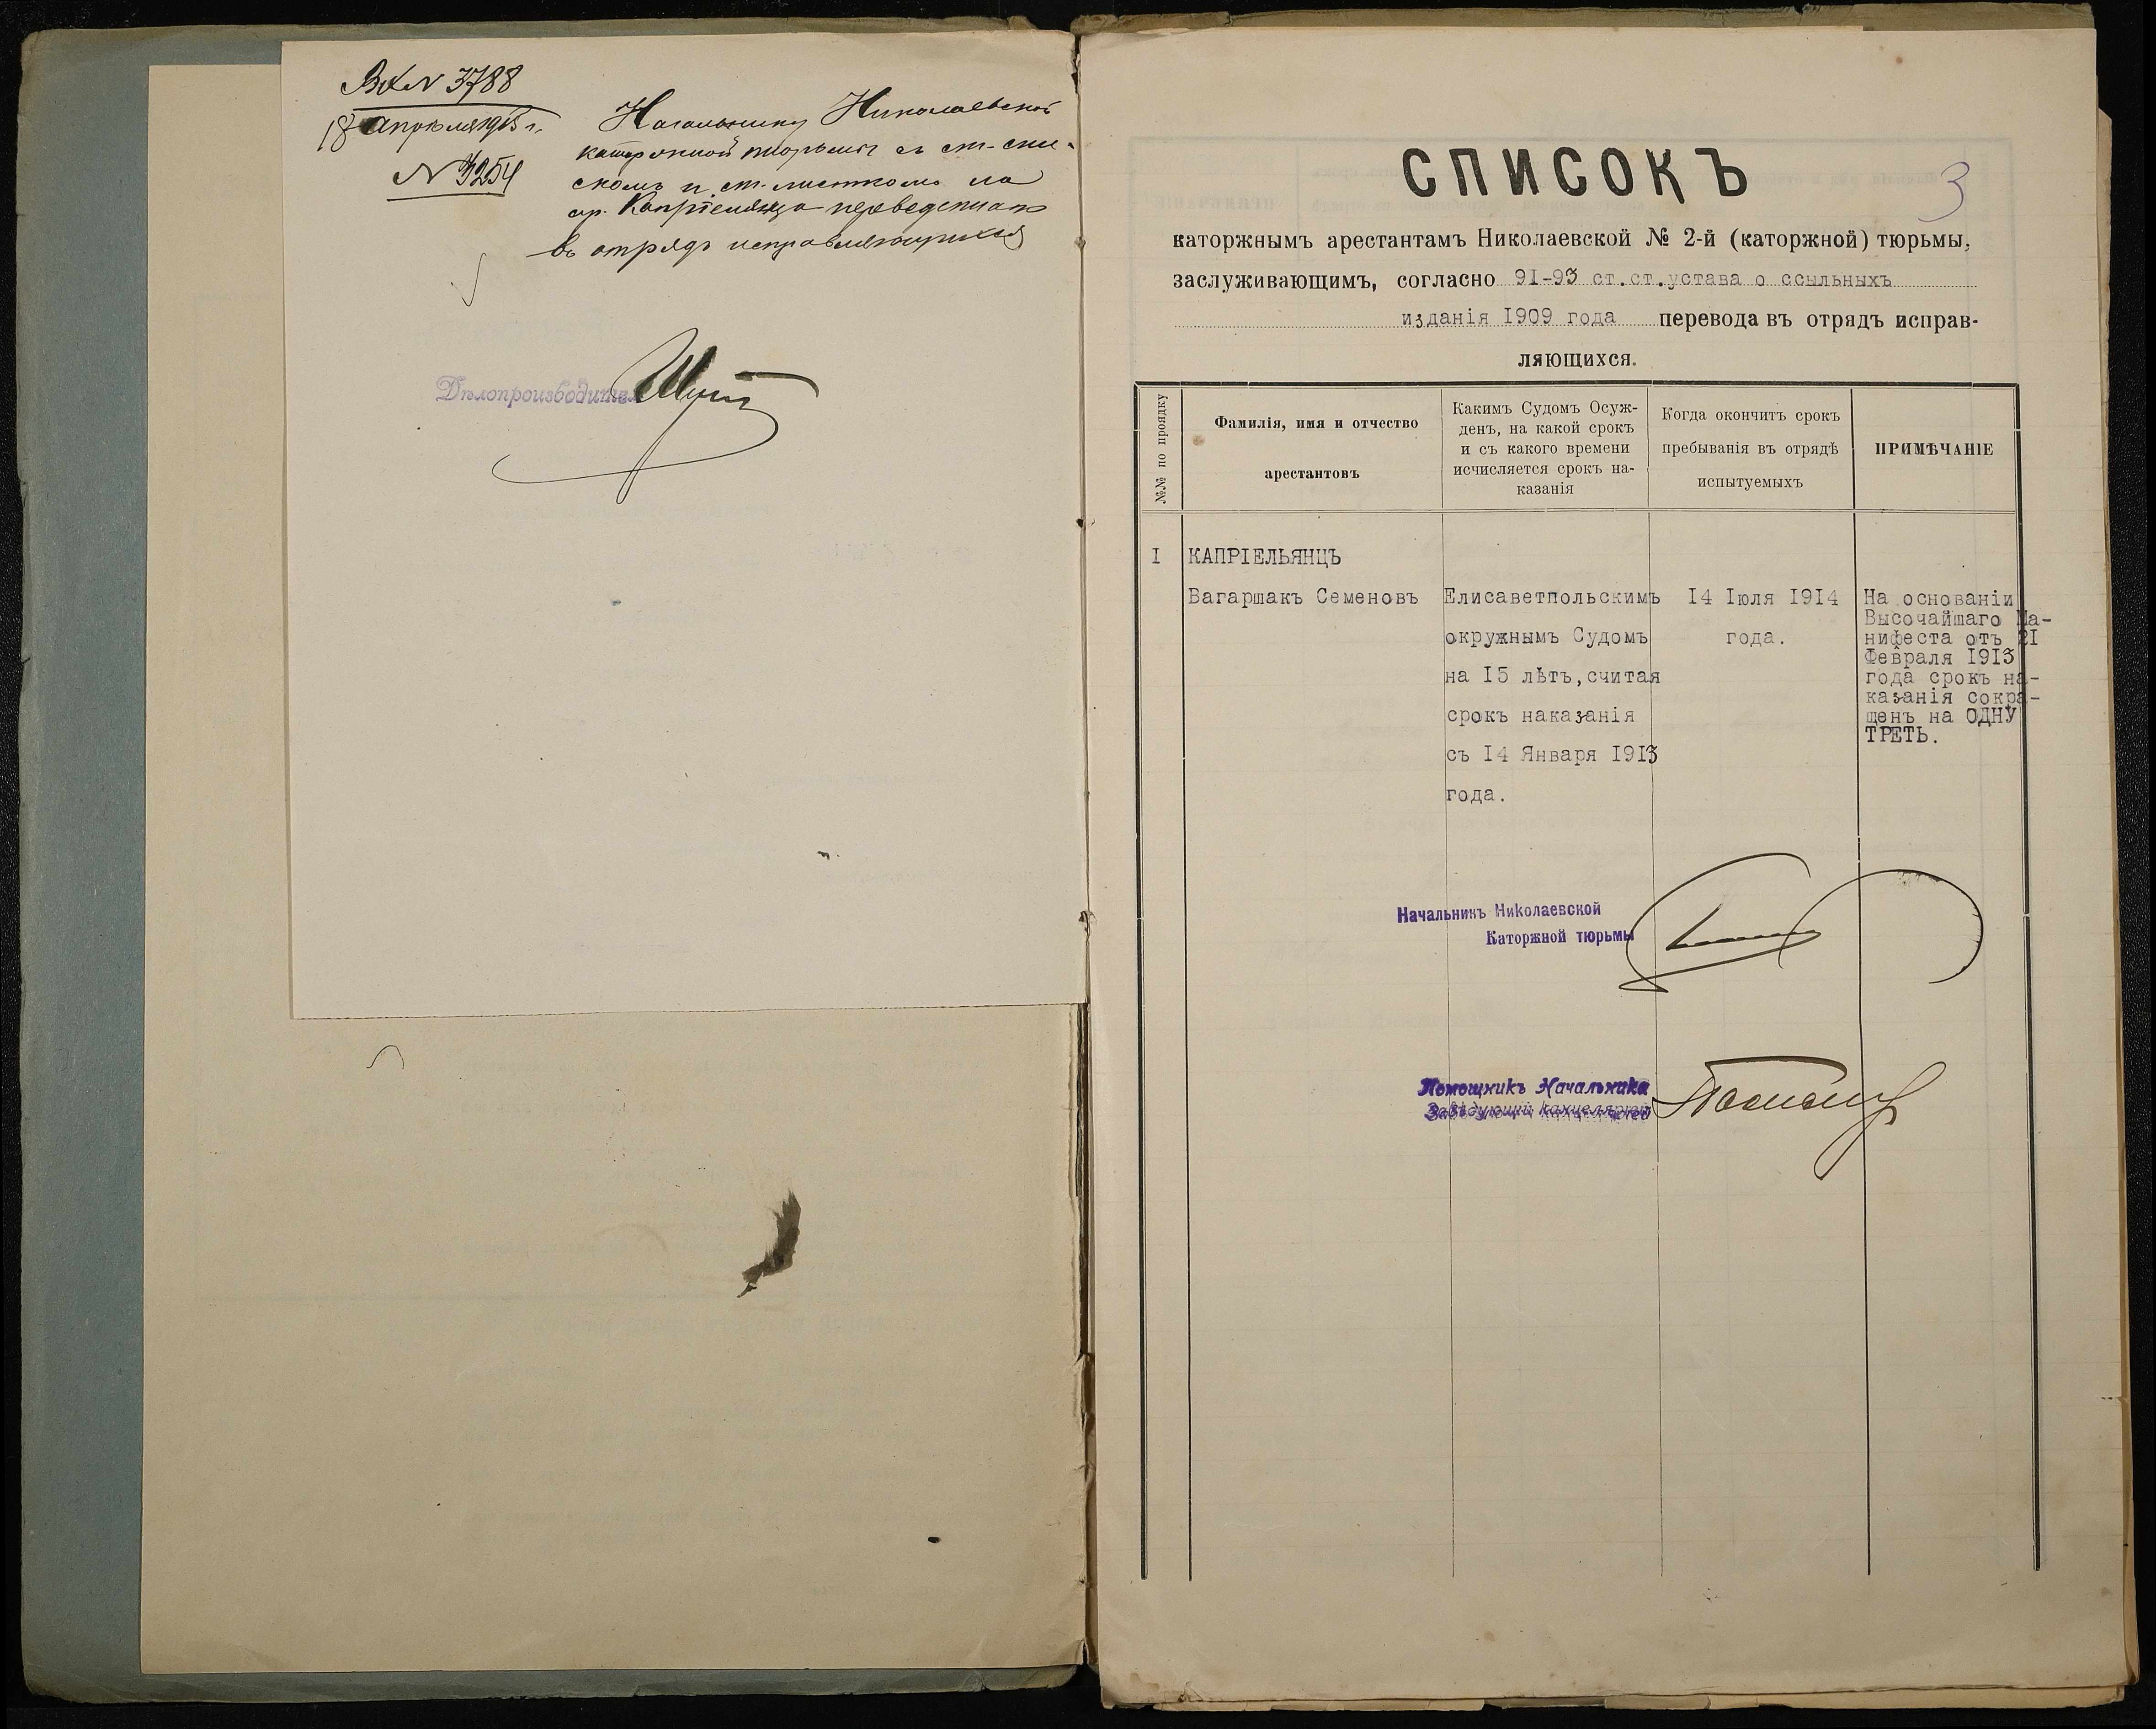 Вх N 3788
18 апреля 1915 г.
N 3254
Начальнику Николаевской
каторжной тюрьмы съ ст-спи-
скомъ и ст-листкомъ на
ар. Капріелянца переведеннаго
въ отрядъ исправляющихся
Дѣлопроизводитель
СПИСОКЪ
3
каторжнымъ арестантамъ Николаевской № 2-й (каторжной) тюрьмы,
заслуживающимъ, согласно 91-93 ст.ст.устава о ссыльныхъ
изданія 1909 года перевода въ отрядъ исправ-
ляющихся.
№№ по проядку
Фамилія, имя и отчество
арестантовъ
Какимъ Судомъ Осуж-
денъ, на какой срокъ
и съ какого времени
исчисляется срокъ на-
казанія
Когда окончитъ срокъ
пребыванія въ отрядѣ
испытуемыхъ
ПРИМѢЧАНІЕ
I КАПРІЕЛЬЯНЦЪ
Вагаршакъ Семеновъ
Елисаветпольскимъ
окружнымъ Судомъ
на 15 лѣтъ,считая
срокъ наказанія
съ 14 Января 1913
года.
14 Іюля 1914
года.
На основаніи
Высочайшаго Ма-
нифеста отъ 21
Февраля 1913
года срокъ на-
казанія сокра-
щенъ на ОДНУ
ТРЕТЬ.
Начальникъ Николаевской
Каторжной тюрьмы
Помощникъ Начальника
Завѣдующій канцеляріей